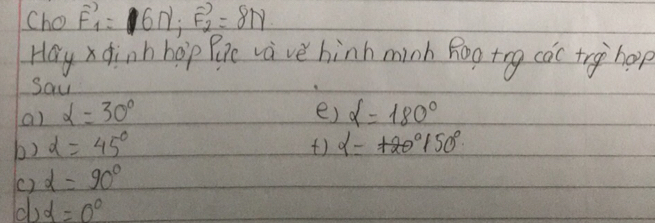 Cho F₁ = 6N; F₂ = 8N
Hãy xđịnh hợp lực và vẽ hình minh hoạ trg các trg hợp
sau
a) α = 30°
b) α = 45°
c) α = 90°
d) α = 0°
e) α = 180°
f) α = 120° 150°